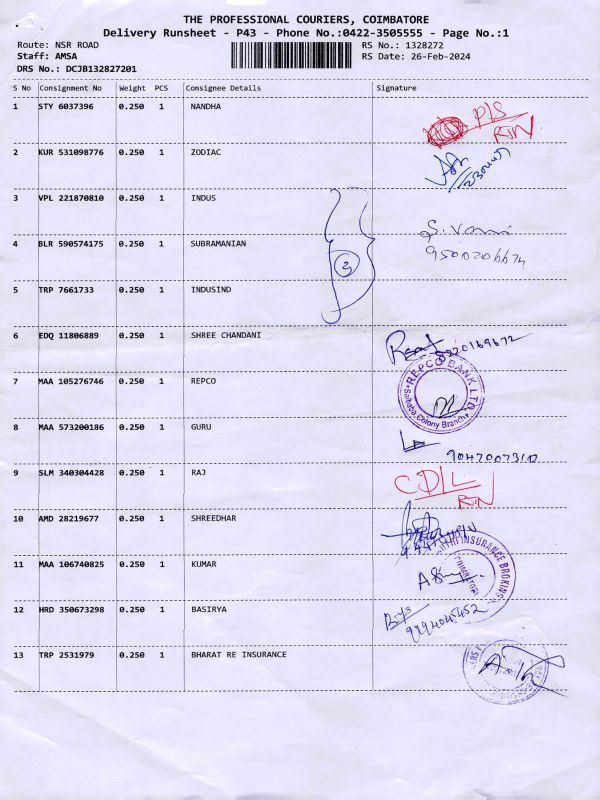 THE PROFESSIONAL COURIERS, COIMBATORE
Delivery Runsheet - P43 - Phone No.:0422-3505555 - Page No.:1
Route: NSR ROAD RS No.: 1328272
Staff: AMSA RS Date: 26-Feb-2024
DRS No.: DCJB132827201
S No Consignment No Weight PCS Consignee Details Signature
1 STY 6037396 0.250 1 NANDHA
P/S
RTN
2 KUR 531098776 0.250 1 ZODIAC
3 VPL 221870810 0.250 1 INDUS
S. Vani
4 BLR 590574175 0.250 1 SUBRAMANIAN
3
5 TRP 7661733 0.250 1 INDUSIND
6 EDQ 11806889 0.250 1 SHREE CHANDANI
7 MAA 105276746 0.250 1 REPCO
REPCO BANK LTD.
Saibaba Colony Branch
8 MAA 573200186 0.250 1 GURU
9 SLM 340304428 0.250 1 RAJ
CD/L
RTN
10 AMD 28219677 0.250 1 SHREEDHAR
INSURANCE BROKING
COIMBATORE
11 MAA 106740825 0.250 1 KUMAR
12 HRD 350673298 0.250 1 BASIRYA
9994045452
13 TRP 2531979 0.250 1 BHARAT RE INSURANCE